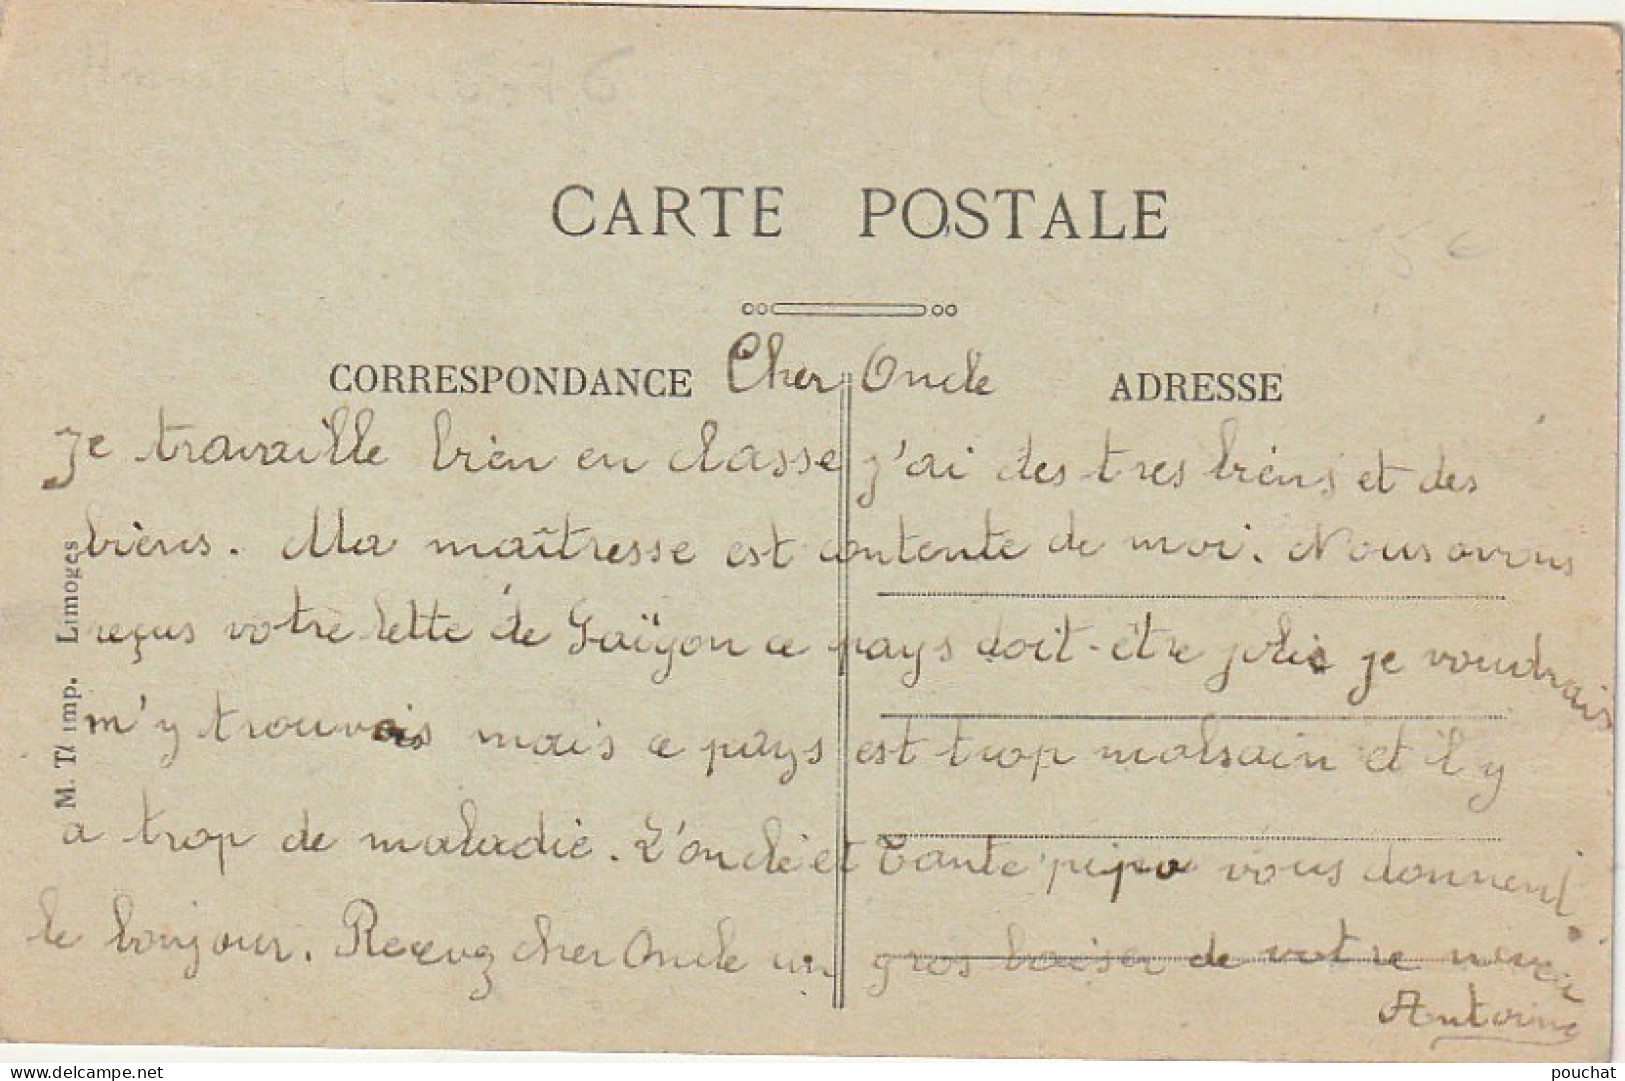 CARTE POSTALE
15 €
CORRESPONDANCE
ADRESSE
Cher Oncle
Je travaille bien en classe j'ai des tres biens et des
biens. Ma maîtresse est contente de moi. Nous avons
reçus votre lette de Saïgon ce pays doit-être jolie je voudrais
m'y trouvais mais ce pays est trop malsain et il y
a trop de maladie. L'oncle et Tante pipo vous donnent
le bonjour. Recevez cher Oncle un gros baiser de votre neveu
Antoine
M. Tl imp. Limoges
delcampe.net
pouchat